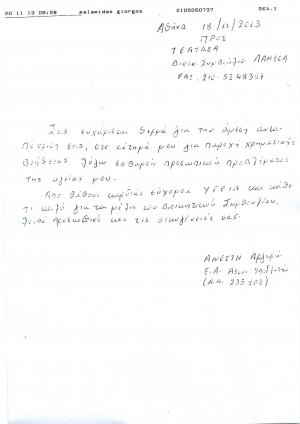 20 11 13 09:28 palamidas giorgos 2105050737 ΣΕΛ.1
Αθήνα 18/11/2013
ΠΡΟΣ
ΤΕΑΥΔΕΑ
Διοικ. Συμβούλιο
FAX. 210-5248367
Σας ευχαριστώ θερμά για την άμεση αντα-
πόκρισή σας, στο αίτημά μου για παροχή χρηματικής
βοήθειας λόγω σοβαρού προσωπικού προβλήματος
της υγείας μου.
Από βάθους καρδιάς εύχομαι ΥΓΕΙΑ και κάθε
τι καλό για τα μέλη του Διοικητικού Συμβουλίου,
λοιπό προσωπικό και τις οικογένειές σας.
ΑΝΕΣΤΗ
Ε.Α.
(Α.Μ. 233202)